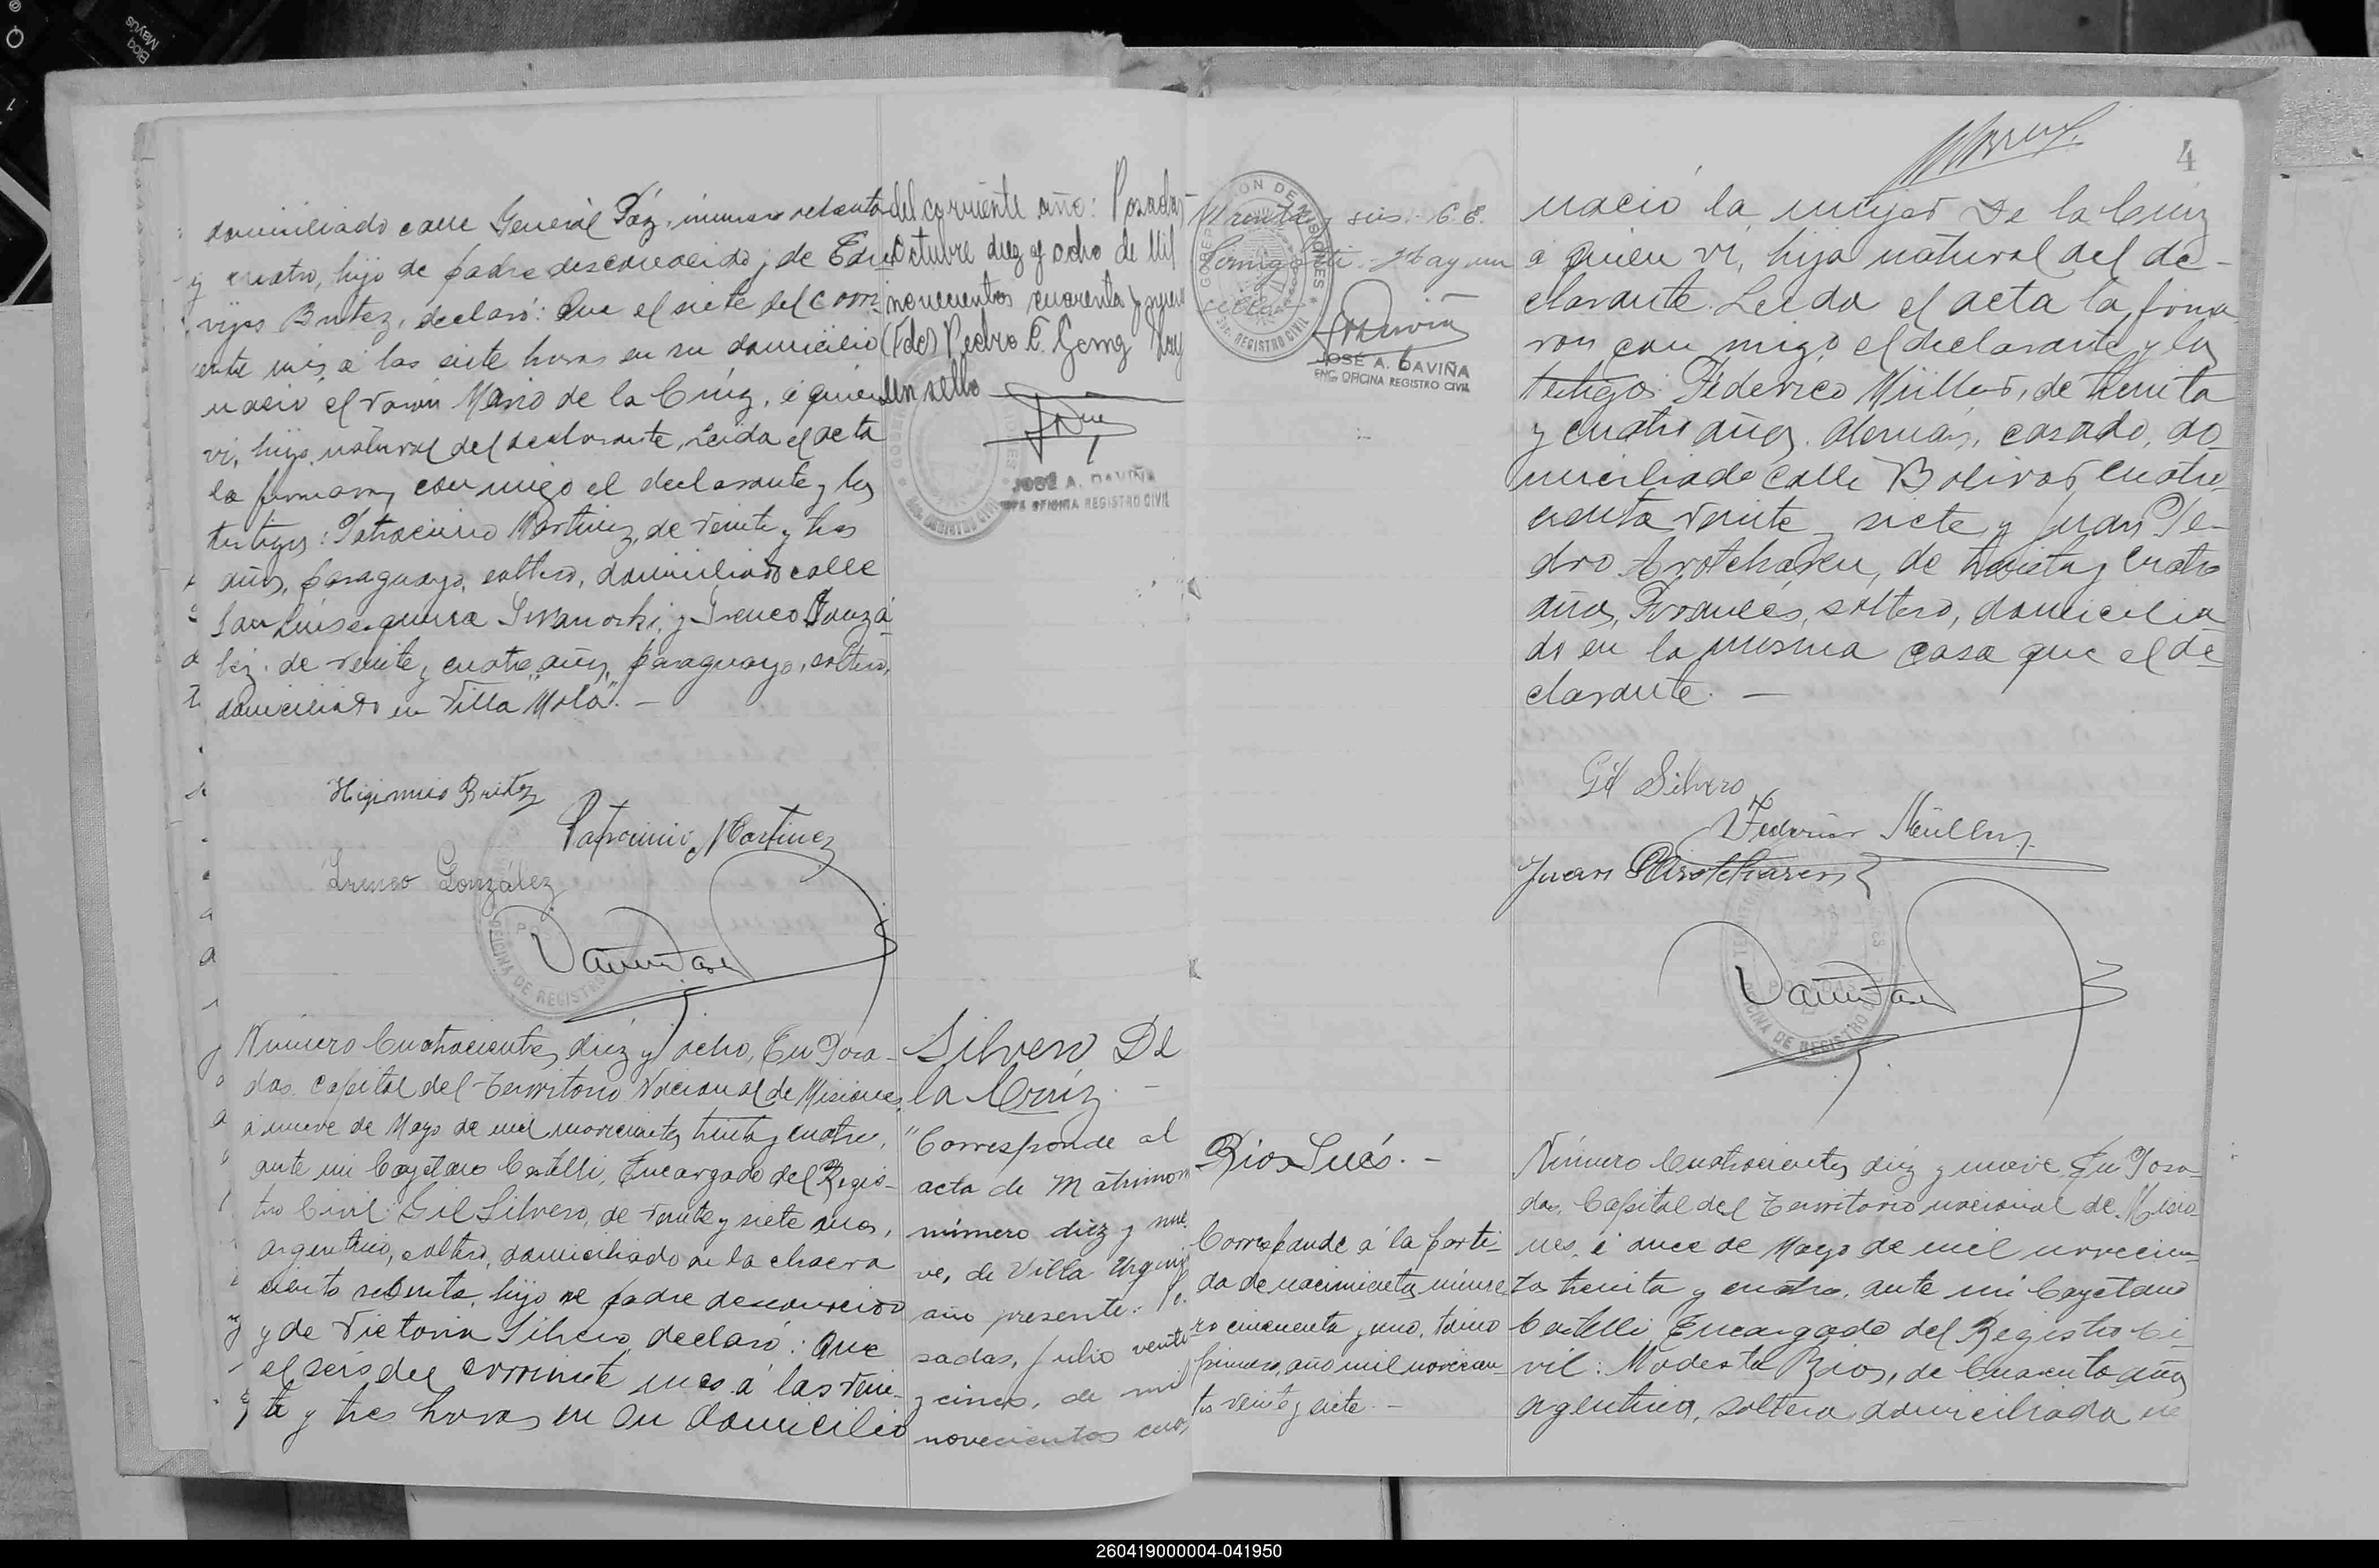 domiciliado calle General Páz, número setenta
y cuatro, hijo de padre desconocido y de Edu-
vijes Britez, declaró: Que el siete del corri-
ente mes, a las siete horas en su domicilio
nació el varón Mario de la Crúz, a quien
vi, hijo natural del declarante, Leída el acta
la firmaron conmigo el declarante y los
testigos: Patrocinio Martinez, de veinte y tres
años, paraguayo, soltero, domiciliado calle
San Luis esquina y Ireneo Gonzá-
lez, de veinte y cuatro años, paraguayo, soltero,
domiciliado en "Villa Mola". —
del corriente año: Posadas
Octubre diez y ocho de Mil
novecientos cuarenta y nueve
(Fdo) Pedro E. Gemg Hay
un sello
JOSÉ A. DAVIÑA
JEFE OFICINA REGISTRO CIVIL
Higinnio Britez
Patrocinio Martinez
Ireneo González
OFICINA DE REGISTRO
Número Cuatrocientos diéz y ocho, En Posa-
das, Capital del Territorio Nacional de Misiones,
a nueve de Mayo de mil novecientos treinta y cuatro,
ante mi Cayetano Castelli, Encargado del Regis-
tro Civil: Gil Silvero, de veinte y siete años,
argentino, soltero, domiciliado en la chacra
ciento setenta, hijo de padre desconocido
y de Victoria Silvero, declaró: Que
el seis del corriente mes a las vein-
te y tres horas en su domicilio
Silvero De
la Crúz. —
"Corresponde al
acta de Matrimon
número diez y nue
ve, de Villa
año presente: Po
sadas, Julio veinte
y cinco, de mil
novecientos cua
y seis.
JOSÉ A. DAVIÑA
ENC. OFICINA REGISTRO CIVIL
4
nació la mujer De la Crúz
a quien vi, hija natural del de-
clarante. Leída el acta la firma-
ron con migo el declarante y los
testigos: Féderico Müller, de treinta
y cuatro años, alemán, casado, do-
miciliado calle Bolivar cuatro-
cientos veinte y siete y Juan Pe-
dro Arotcharen, de treinta y cuatro
años, Francés, soltero, domicilia
do en la misma casa que el de
clarante. —
Gil Silvero
Federico Müller
Juan P Arotcharen
OFICINA DE REGISTRO
Rios Inés. —
Corresponde á la parti-
da de nacimientos núme
ro cincuenta y uno, tomo
primero, año mil novecien-
tos veinte y siete. —
Número Cuatrocientos diéz y nueve, En Posa-
das, Capital del Territorio nacional de Misio-
nes, a once de Mayo de mil novecien-
tos treinta y cuatro, ante mi Cayetano
Castelli, Encargado del Registro Ci-
vil: Modesta Rios, de Cuarenta años
argentina, soltera domiciliada en
260419000004-041950